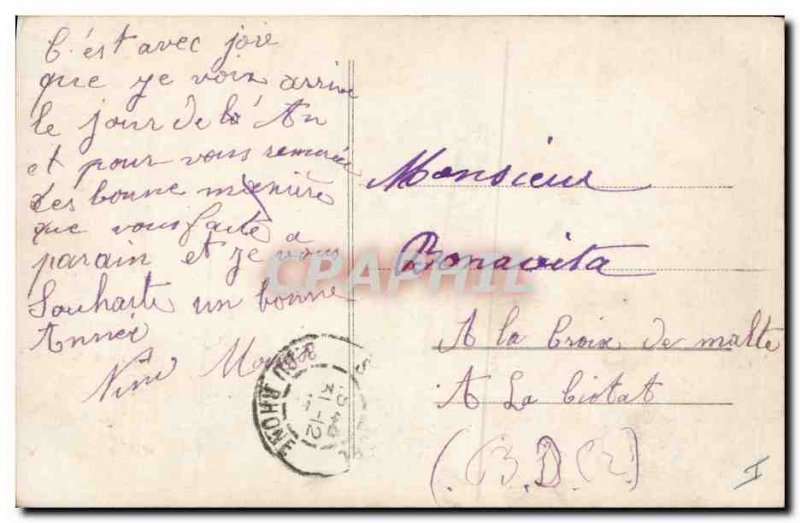 C'est avec joie
que je voix arrive
le jour de l'An
et pour vous remercier
des bonne manière
que vous faite a
parain et je vous
Souhaite un bonne
Année
Nini
Monsieur
Bonavita
A la Croix de malte
A La Ciotat
(B. D. R)
31-12
CPAPHIL
I